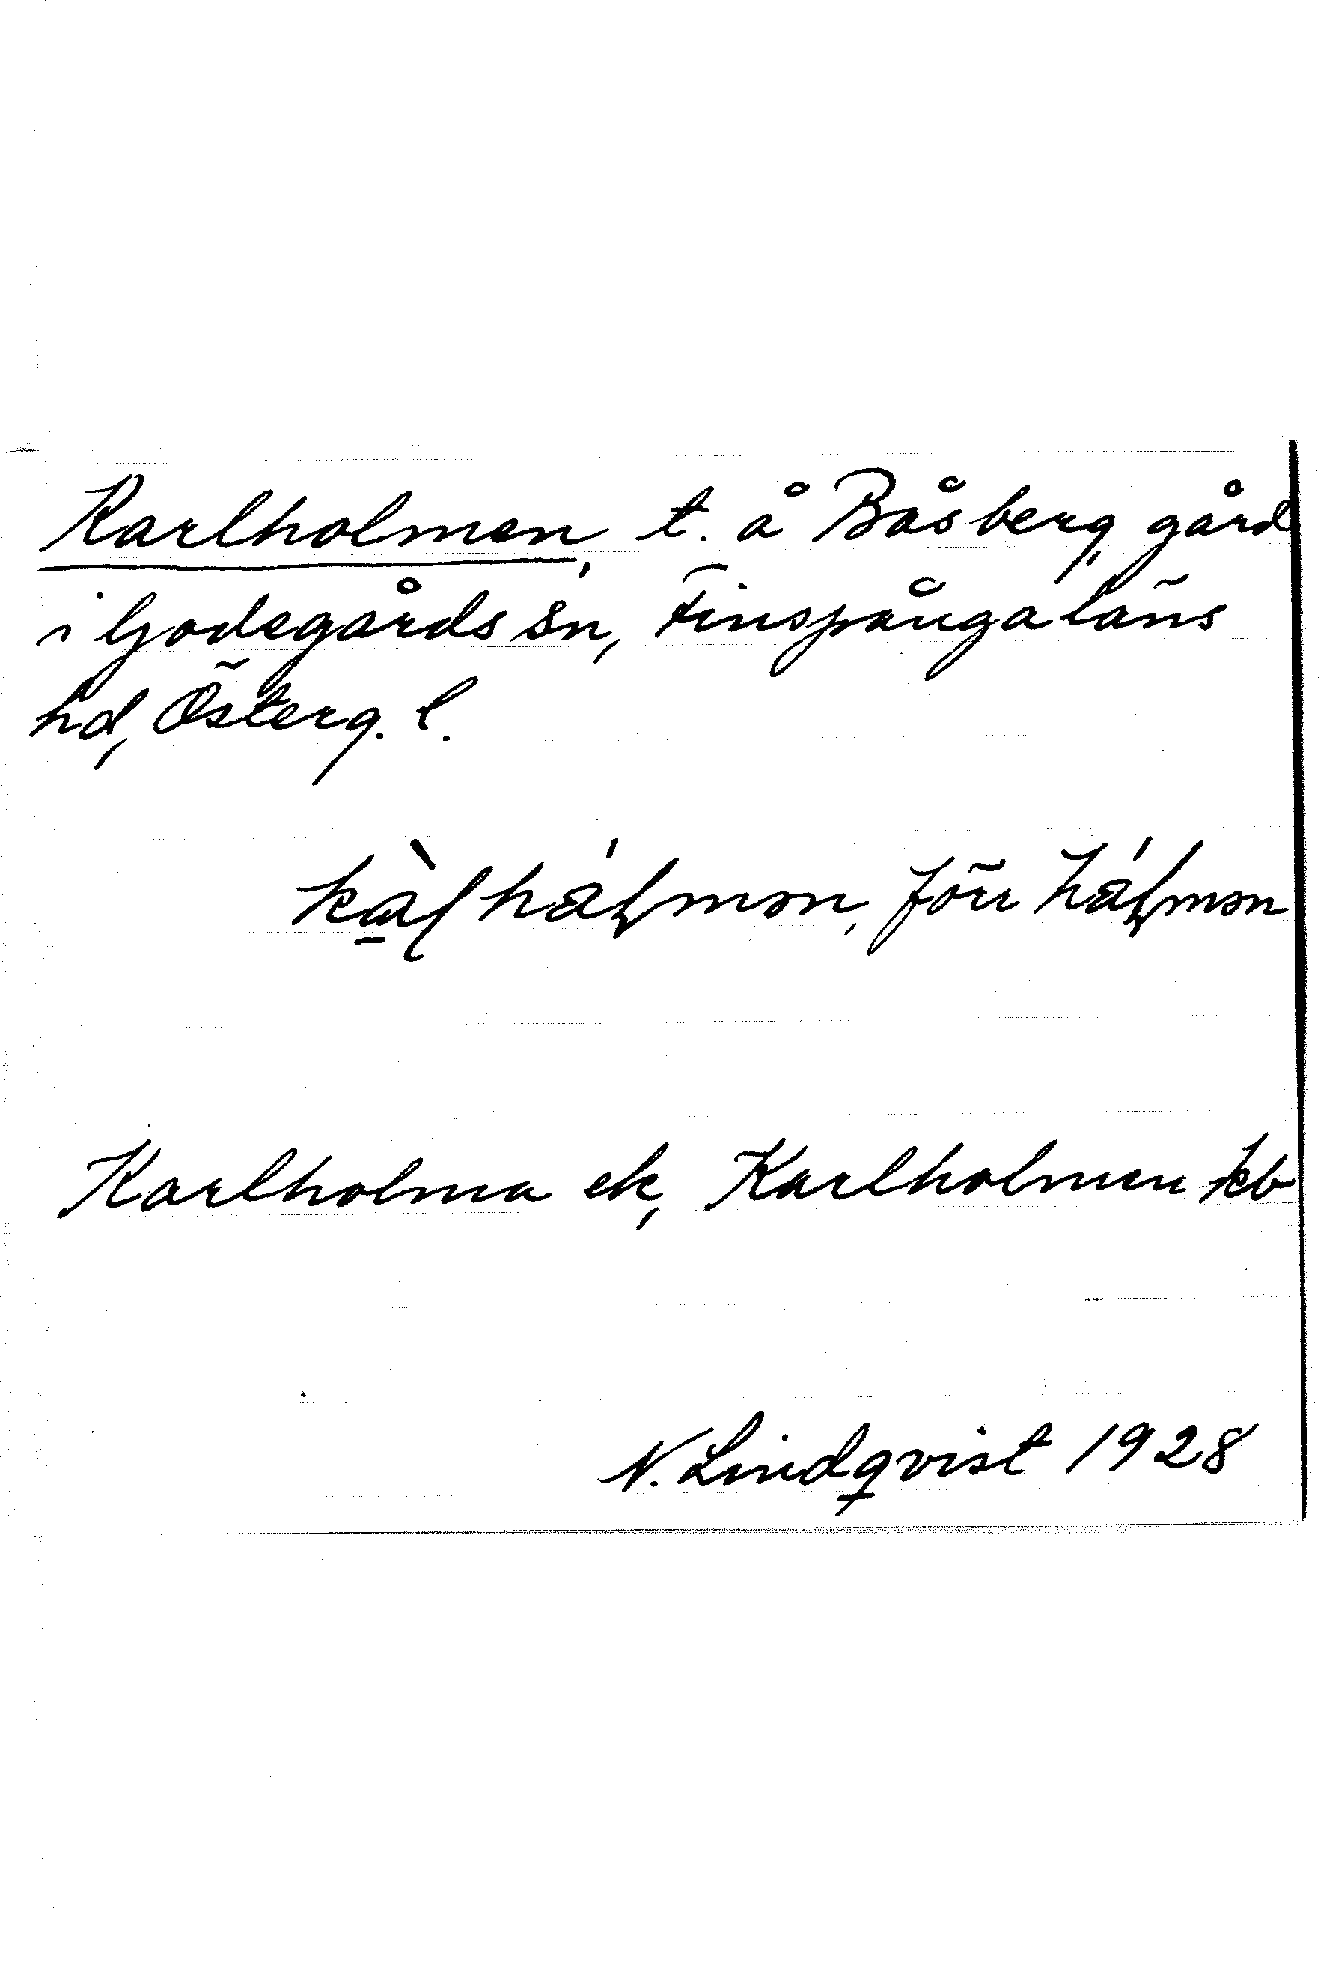 Karlholmen, t. å Båsberg, gård
i Godegårds sn, Finspångaläns
hd, Österg. l.
förr
Karlholma ek, Karlholmen kb
N. Lindqvist 1928